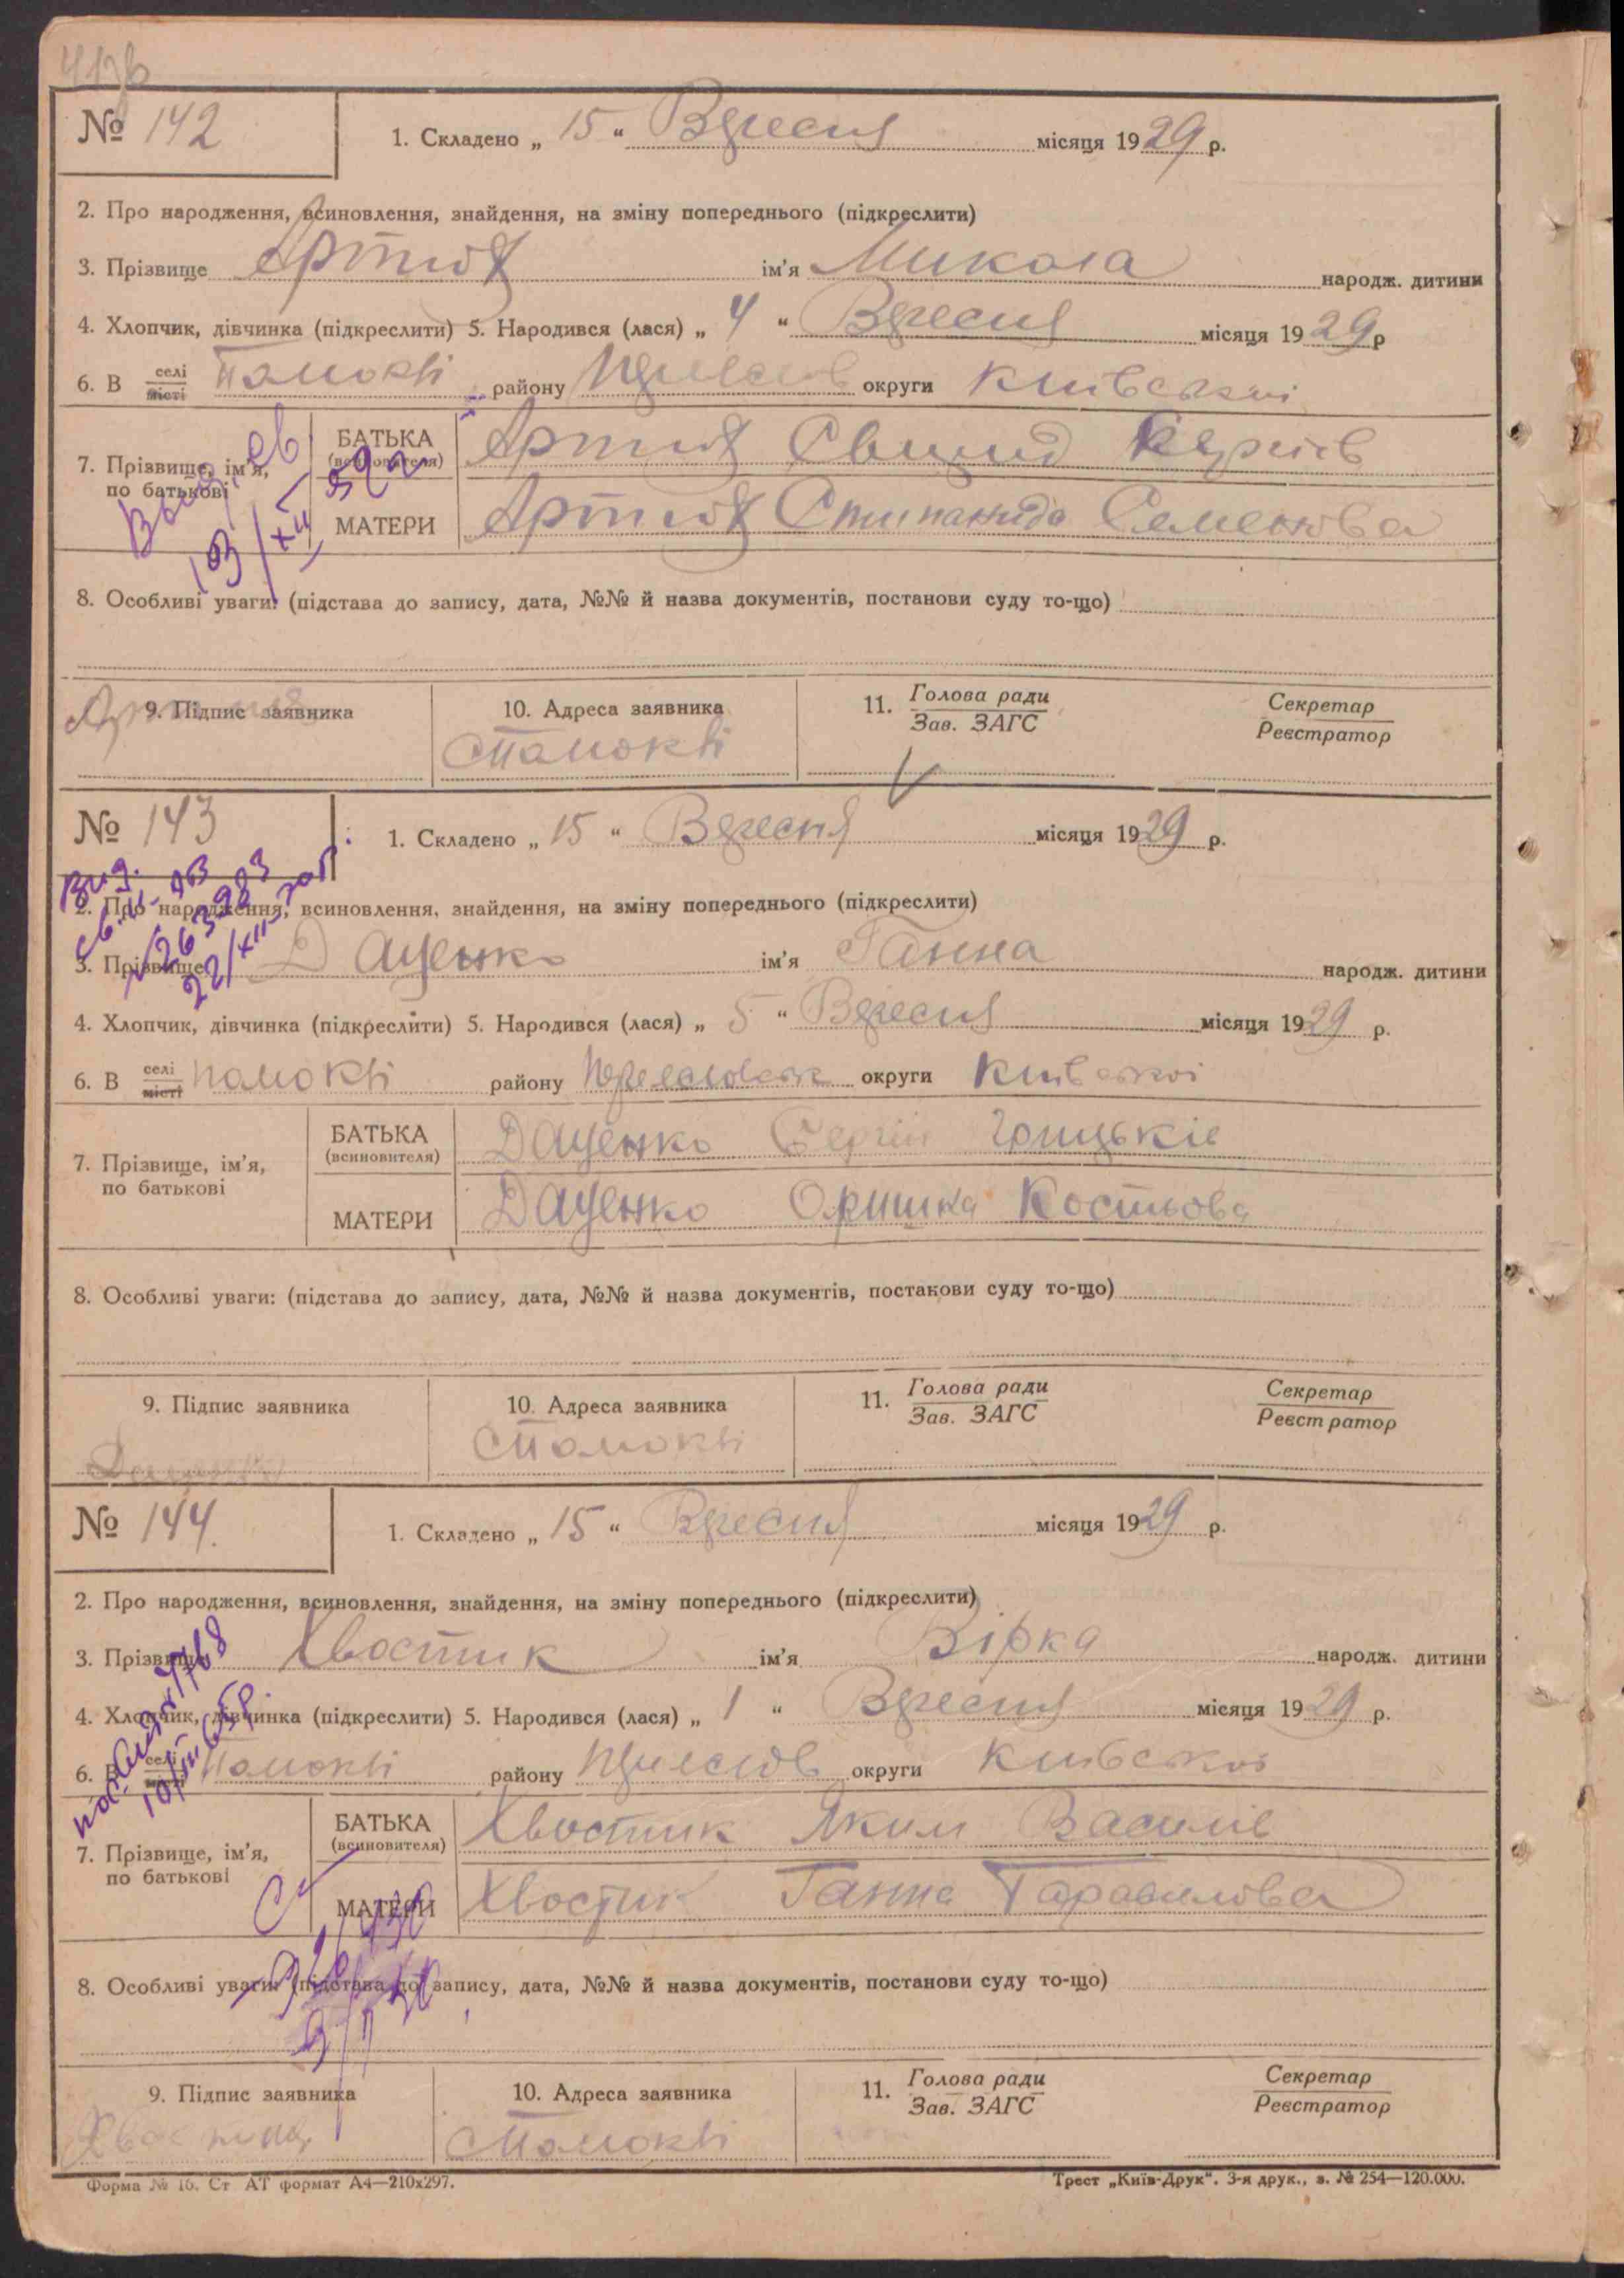 № 142
1. Складено „ 15 “ Вересня місяця 1929 р.
2. Про народження, всиновлення, знайдення, на зміну попереднього (підкреслити)
3. Прізвище Артюх ім'я Микола народж. дитини
4. Хлопчик, дівчинка (підкреслити) 5. Народився (лася) „ 4 “ Вересня місяця 1929 р
6. В селі Помоклі району округи Київської
місті
7. Прізвище, ім'я,
по батькові
БАТЬКА Артюх
(всиновителя)
МАТЕРИ Артюх Степанида Семенова
8. Особливі уваги: (підстава до запису, дата, №№ й назва документів, постанови суду то-що)
9. Підпис заявника 10. Адреса заявника 11. Голова ради Секретар
Зав. ЗАГС Реєстратор
с Помоклі
№ 143
1. Складено „ 15 “ Вересня місяця 1929 р.
2. Про народження, всиновлення, знайдення, на зміну попереднього (підкреслити)
3. Прізвище Даценко ім'я Ганна народж. дитини
4. Хлопчик, дівчинка (підкреслити) 5. Народився (лася) „ 5 “ Вересня місяця 1929 р.
6. В селі Помоклі району округи Київської
місті
7. Прізвище, ім'я,
по батькові
БАТЬКА Даценко Сергій Грицьків
(всиновителя)
МАТЕРИ Даценко Оришка Костьова
8. Особливі уваги: (підстава до запису, дата, №№ й назва документів, постанови суду то-що)
9. Підпис заявника 10. Адреса заявника 11. Голова ради Секретар
Зав. ЗАГС Реєстратор
Даценко с Помоклі
№ 144.
1. Складено „ 15 “ Вересня місяця 1929 р.
2. Про народження, всиновлення, знайдення, на зміну попереднього (підкреслити)
3. Прізвище Хвостик ім'я Вірка народж. дитини
4. Хлопчик, дівчинка (підкреслити) 5. Народився (лася) „ 1 “ Вересня місяця 1929 р.
6. В селі Помоклі району округи Київської
місті
7. Прізвище, ім'я,
по батькові
БАТЬКА Хвостик Яким Василів
(всиновителя)
МАТЕРИ Хвостик Ганна
8. Особливі уваги: (підстава до запису, дата, №№ й назва документів, постанови суду то-що)
9. Підпис заявника 10. Адреса заявника 11. Голова ради Секретар
Зав. ЗАГС Реєстратор
с Помоклі
Форма № 16. Ст АТ формат А4—210х297. Трест „Київ-Друк“. 3-я друк., з. № 254—120.000.